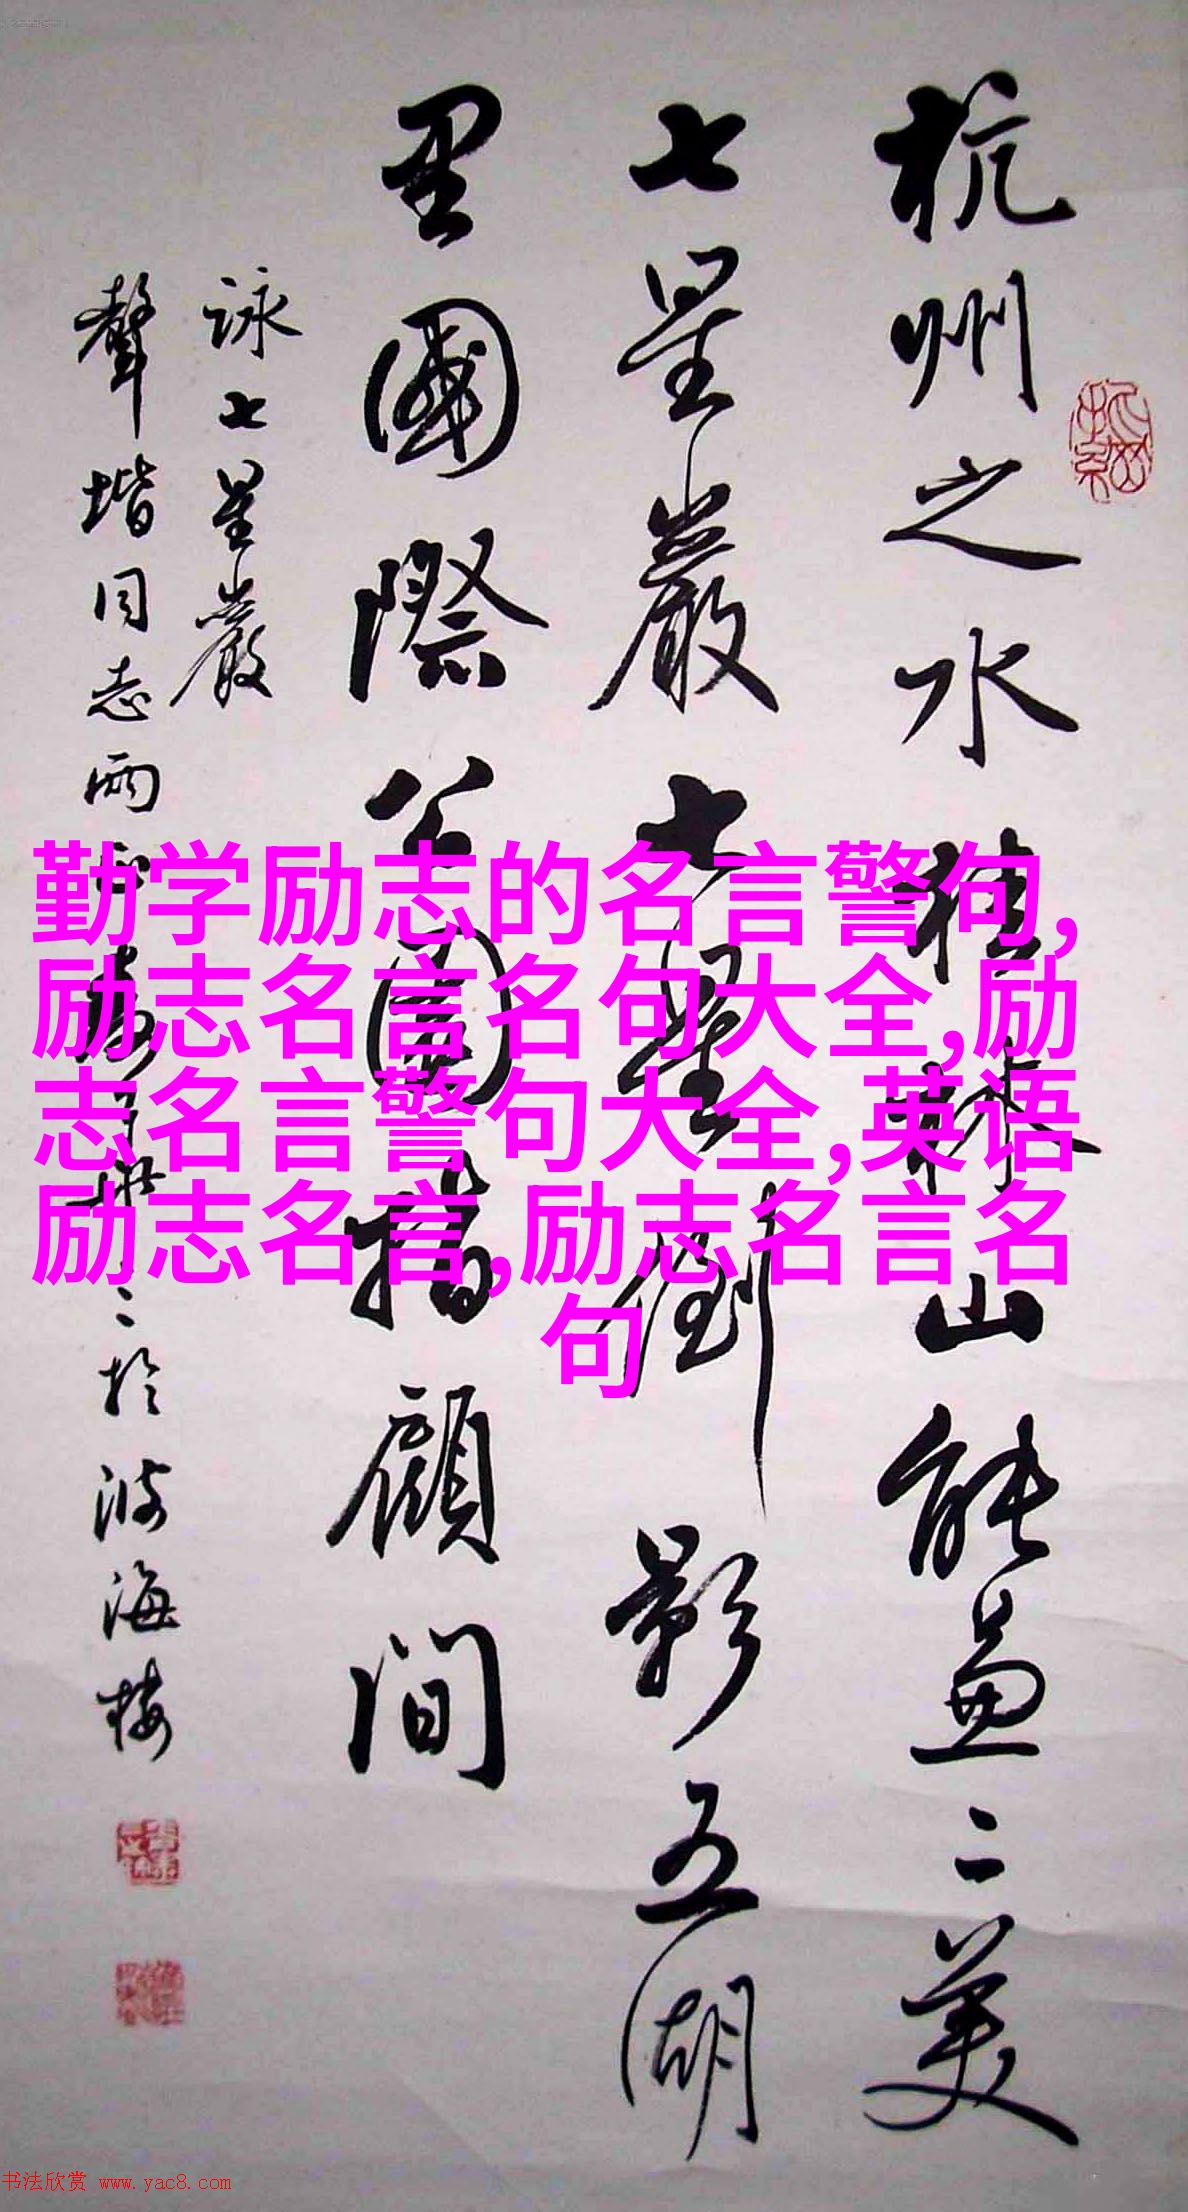 杭州之水桂林山能兼二美
七星巖七星倒影五湖
里國際公園指顧間
詠七星巖
聲堦同志雨正
於波海楼
勤学励志的名言警句,
励志名言名句大全,励
志名言警句大全,英语
励志名言,励志名言名
句
书法欣赏 www.yac8.com